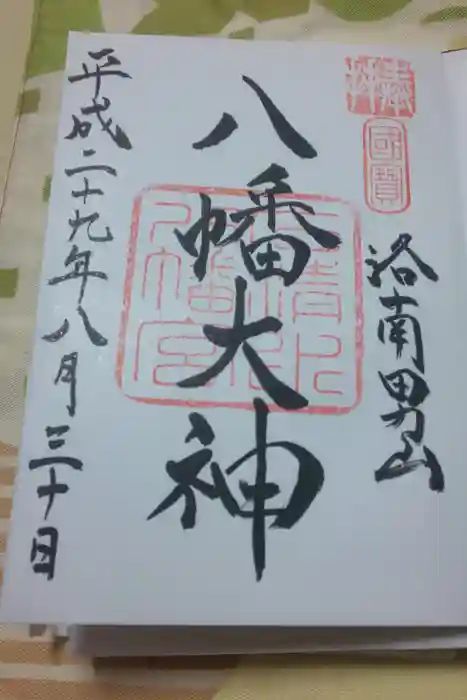 奉拝
國寶
洛南男山
八幡大神
石清水
八幡宮
平成二十九年八月三十日